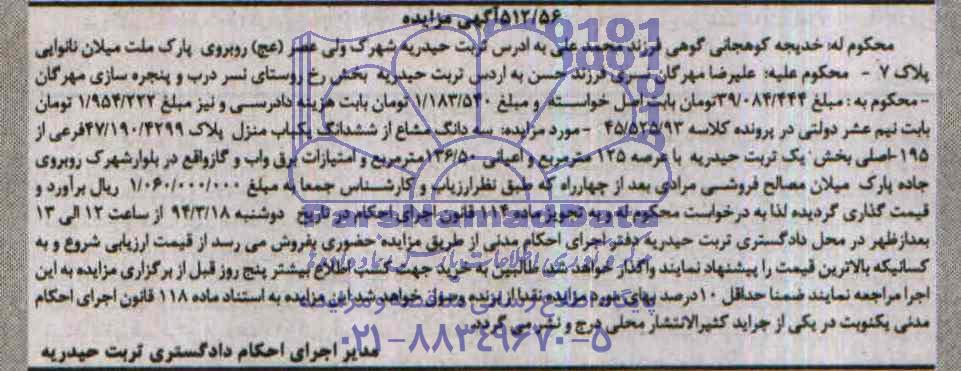 ۵۱۲/۵۶آگهی مزایده
محکوم له: خدیجه کوهجانی گوهی فرزند محمد علی به ادرس تربت حیدریه شهرک ولی عصر (عج) روبروی پارک ملت میلان نانوایی
پلاک ۷ - محکوم علیه: علیرضا مهرگان نسری فرزند حسن به اردس تربت حیدریه بخش رخ روستای نسر درب و پنجره سازی مهرگان
- محکوم به: مبلغ ۳۹/۰۸۴/۴۴۴تومان بابت اصل خواسته و مبلغ ۱/۱۸۳/۵۴۰ تومان بابت هزینه دادرسی و نیز مبلغ ۱/۹۵۴/۲۲۲ تومان
بابت نیم عشر دولتی در پرونده کلاسه ۴۵/۵۲۵/۹۳ - مورد مزایده: سه دانگ مشاع از ششدانگ یکباب منزل پلاک ۴۷/۱۹۰/۴۲۹۹فرعی از
۱۹۵-اصلی بخش یک تربت حیدریه با عرصه ۱۲۵ مترمربع و اعیانی ۱۳۶/۵۰مترمربع و امتیازات برق واب و گازواقع در بلوارشهرک روبروی
جاده پارک میلان مصالح فروشی مرادی بعد از چهارراه که طبق نظرارزیاب و کارشناس جمعا به مبلغ ۱/۰۶۰/۰۰۰/۰۰۰ ریال برآورد و
قیمت گذاری گردیده لذا به درخواست محکوم له و به تجویز ماده ۱۱۴ قانون اجرای احکام در تاریخ دوشنبه ۹۴/۳/۱۸ از ساعت ۱۲ الی ۱۳
بعدازظهر در محل دادگستری تربت حیدریه دفتر اجرای احکام مدنی از طریق مزایده حضوری بفروش می رسد از قیمت ارزیابی شروع و به
کسانیکه بالاترین قیمت را پیشنهاد نمایند واگذار خواهد شد. طالبین به خرید جهت کسب اطلاع بیشتر پنج روز قبل از برگزاری مزایده به این
اجرا مراجعه نمایند ضمنا حداقل ۱۰درصد بهای مورد مزایده نقدا از برنده وصول خواهد شد این مزایده به استناد ماده ۱۱۸ قانون اجرای احکام
مدنی یکنوبت در یکی از جراید کثیرالانتشار محلی درج و نشر می گردد.
مدیر اجرای احکام دادگستری تربت حیدریه
ParsNamadData
۰۲۱-۸۸۳۴۹۶۷۰-۵